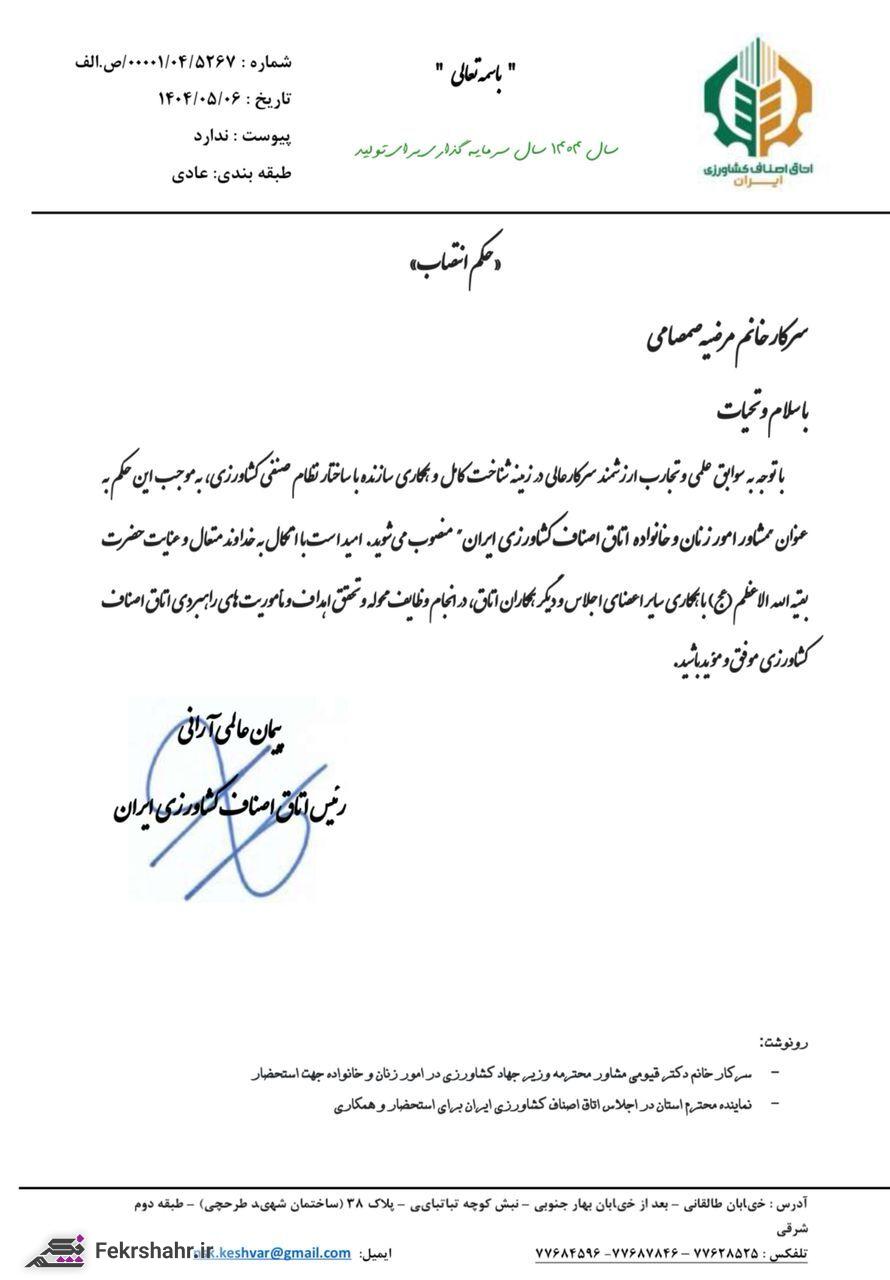 شماره : ۰۰۰۰۱/۰۴/۵۲۶۷/ص.الف
تاریخ : ۱۴۰۴/۰۵/۰۶
پیوست : ندارد
طبقه بندی: عادی
" باسمه تعالی "
سال ۱۴۰۴ سال سرمایه گذاری برای تولید
اتاق اصناف کشاورزی
ایـــران
«حکم انتصاب»
سرکار خانم مرضیه صمصامی
با سلام و تحیات
با توجه به سوابق علمی و تجارب ارزشمند سرکارعالی در زمینه شناخت کامل و همکاری سازنده با ساختار نظام صنفی کشاورزی، به موجب این حکم به
عنوان "مشاور امور زنان و خانواده اتاق اصناف کشاورزی ایران" منصوب می‌شوید. امید است با اتکال به خداوند متعال و عنایت حضرت
بقیه الله الاعظم (عج) با همکاری سایر اعضای اجلاس و دیگر همکاران اتاق، در انجام وظایف محوله و تحقق اهداف و مأموریت های راهبردی اتاق اصناف
کشاورزی موفق و مؤید باشید.
پیمان عالمی آرانی
رئیس اتاق اصناف کشاورزی ایران
رونوشت:
- سرکار خانم دکتر قیومی مشاور محترمه وزیر جهاد کشاورزی در امور زنان و خانواده جهت استحضار
- نماینده محترم استان در اجلاس اتاق اصناف کشاورزی ایران برای استحضار و همکاری
آدرس : خی‌ابان طالقانی – بعد از خی‌ابان بهار جنوبی – نبش کوچه تباتبای‌ی – پلاک ۳۸ (ساختمان شهی‌د طرحچی) – طبقه دوم
شرقی
تلفکس : ۷۷۶۲۸۵۲۵ – ۷۷۶۸۷۸۴۶- ۷۷۶۸۴۵۹۶
ایمیل: .keshvar@gmail.com
Fekrshahr.ir